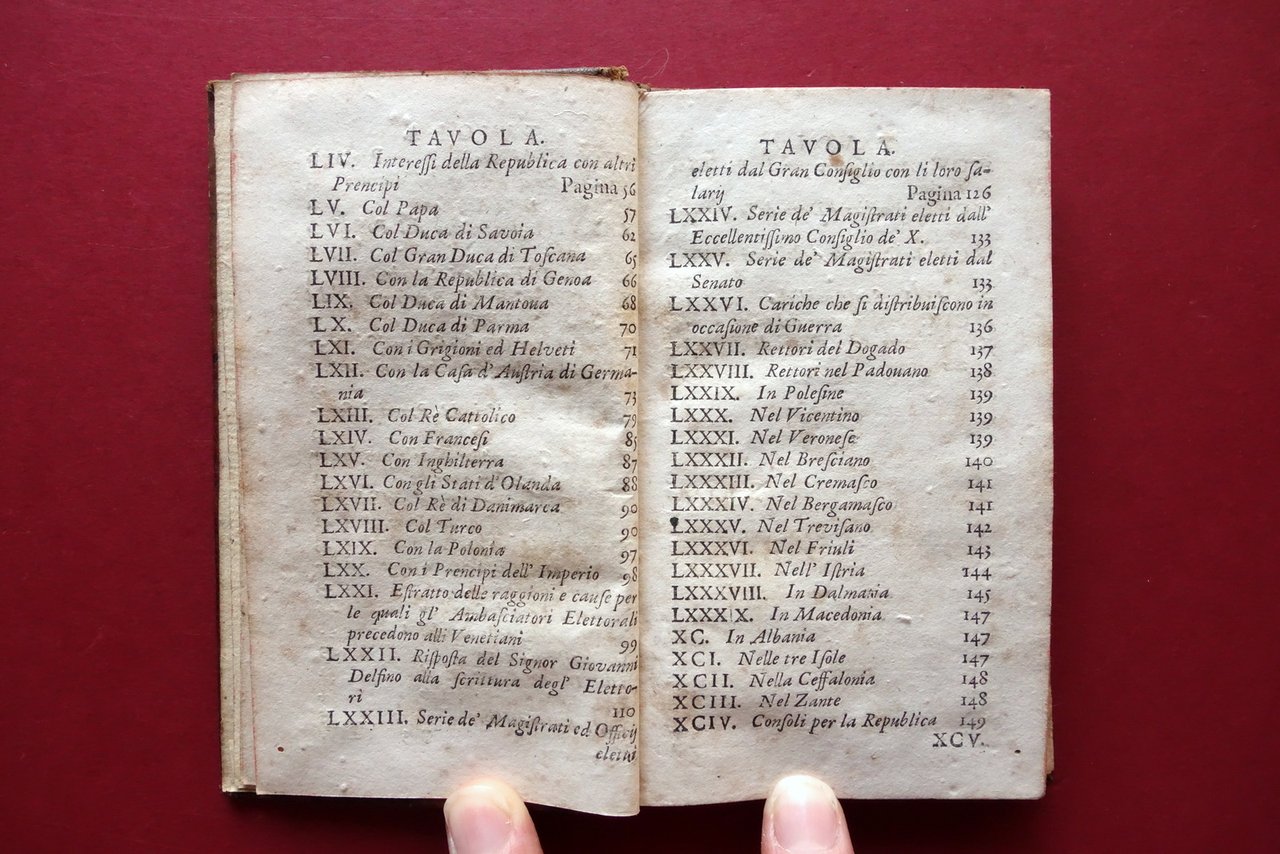 TAVOLA.
LIV. Interessi della Republica con altri
Prencipi Pagina 56
LV. Col Papa 57
LVI. Col Duca di Savoia 62
LVII. Col Gran Duca di Toscana 65
LVIII. Con la Republica di Genoa 66
LIX. Col Duca di Mantoua 68
LX. Col Duca di Parma 70
LXI. Con i Grigioni ed Helveti 71
LXII. Con la Casa d'Austria di Germa-
nia 73
LXIII. Col Rè Cattolico 79
LXIV. Con Francesi 85
LXV. Con Inghilterra 87
LXVI. Con gli Stati d'Olanda 88
LXVII. Col Rè di Danimarca 90
LXVIII. Col Turco 90
LXIX. Con la Polonia 97
LXX. Con i Prencipi dell' Imperio 98
LXXI. Estratto delle raggioni e cause per
le quali gl' Ambasciatori Elettorali
precedono alli Venetiani 99
LXXII. Risposta del Signor Giovanni
Delfino alla scrittura degl' Eletto-
ri 110
LXXIII. Serie de' Magistrati ed Officij
eletti
TAVOLA.
eletti dal Gran Consiglio con li loro sa-
larij Pagina 126
LXXIV. Serie de' Magistrati eletti dall'
Eccellentissimo Consiglio de' X. 133
LXXV. Serie de' Magistrati eletti dal
Senato 133
LXXVI. Cariche che si distribuiscono in
occasione di Guerra 136
LXXVII. Rettori del Dogado 137
LXXVIII. Rettori nel Padouano 138
LXXIX. In Polesine 139
LXXX. Nel Vicentino 139
LXXXI. Nel Veronese 139
LXXXII. Nel Bresciano 140
LXXXIII. Nel Cremasco 141
LXXXIV. Nel Bergamasco 141
LXXXV. Nel Trevisano 142
LXXXVI. Nel Friuli 143
LXXXVII. Nell' Istria 144
LXXXVIII. In Dalmatia 145
LXXXIX. In Macedonia 147
XC. In Albania 147
XCI. Nelle tre Isole 147
XCII. Nella Ceffalonia 148
XCIII. Nel Zante 148
XCIV. Consoli per la Republica 149
XCV.